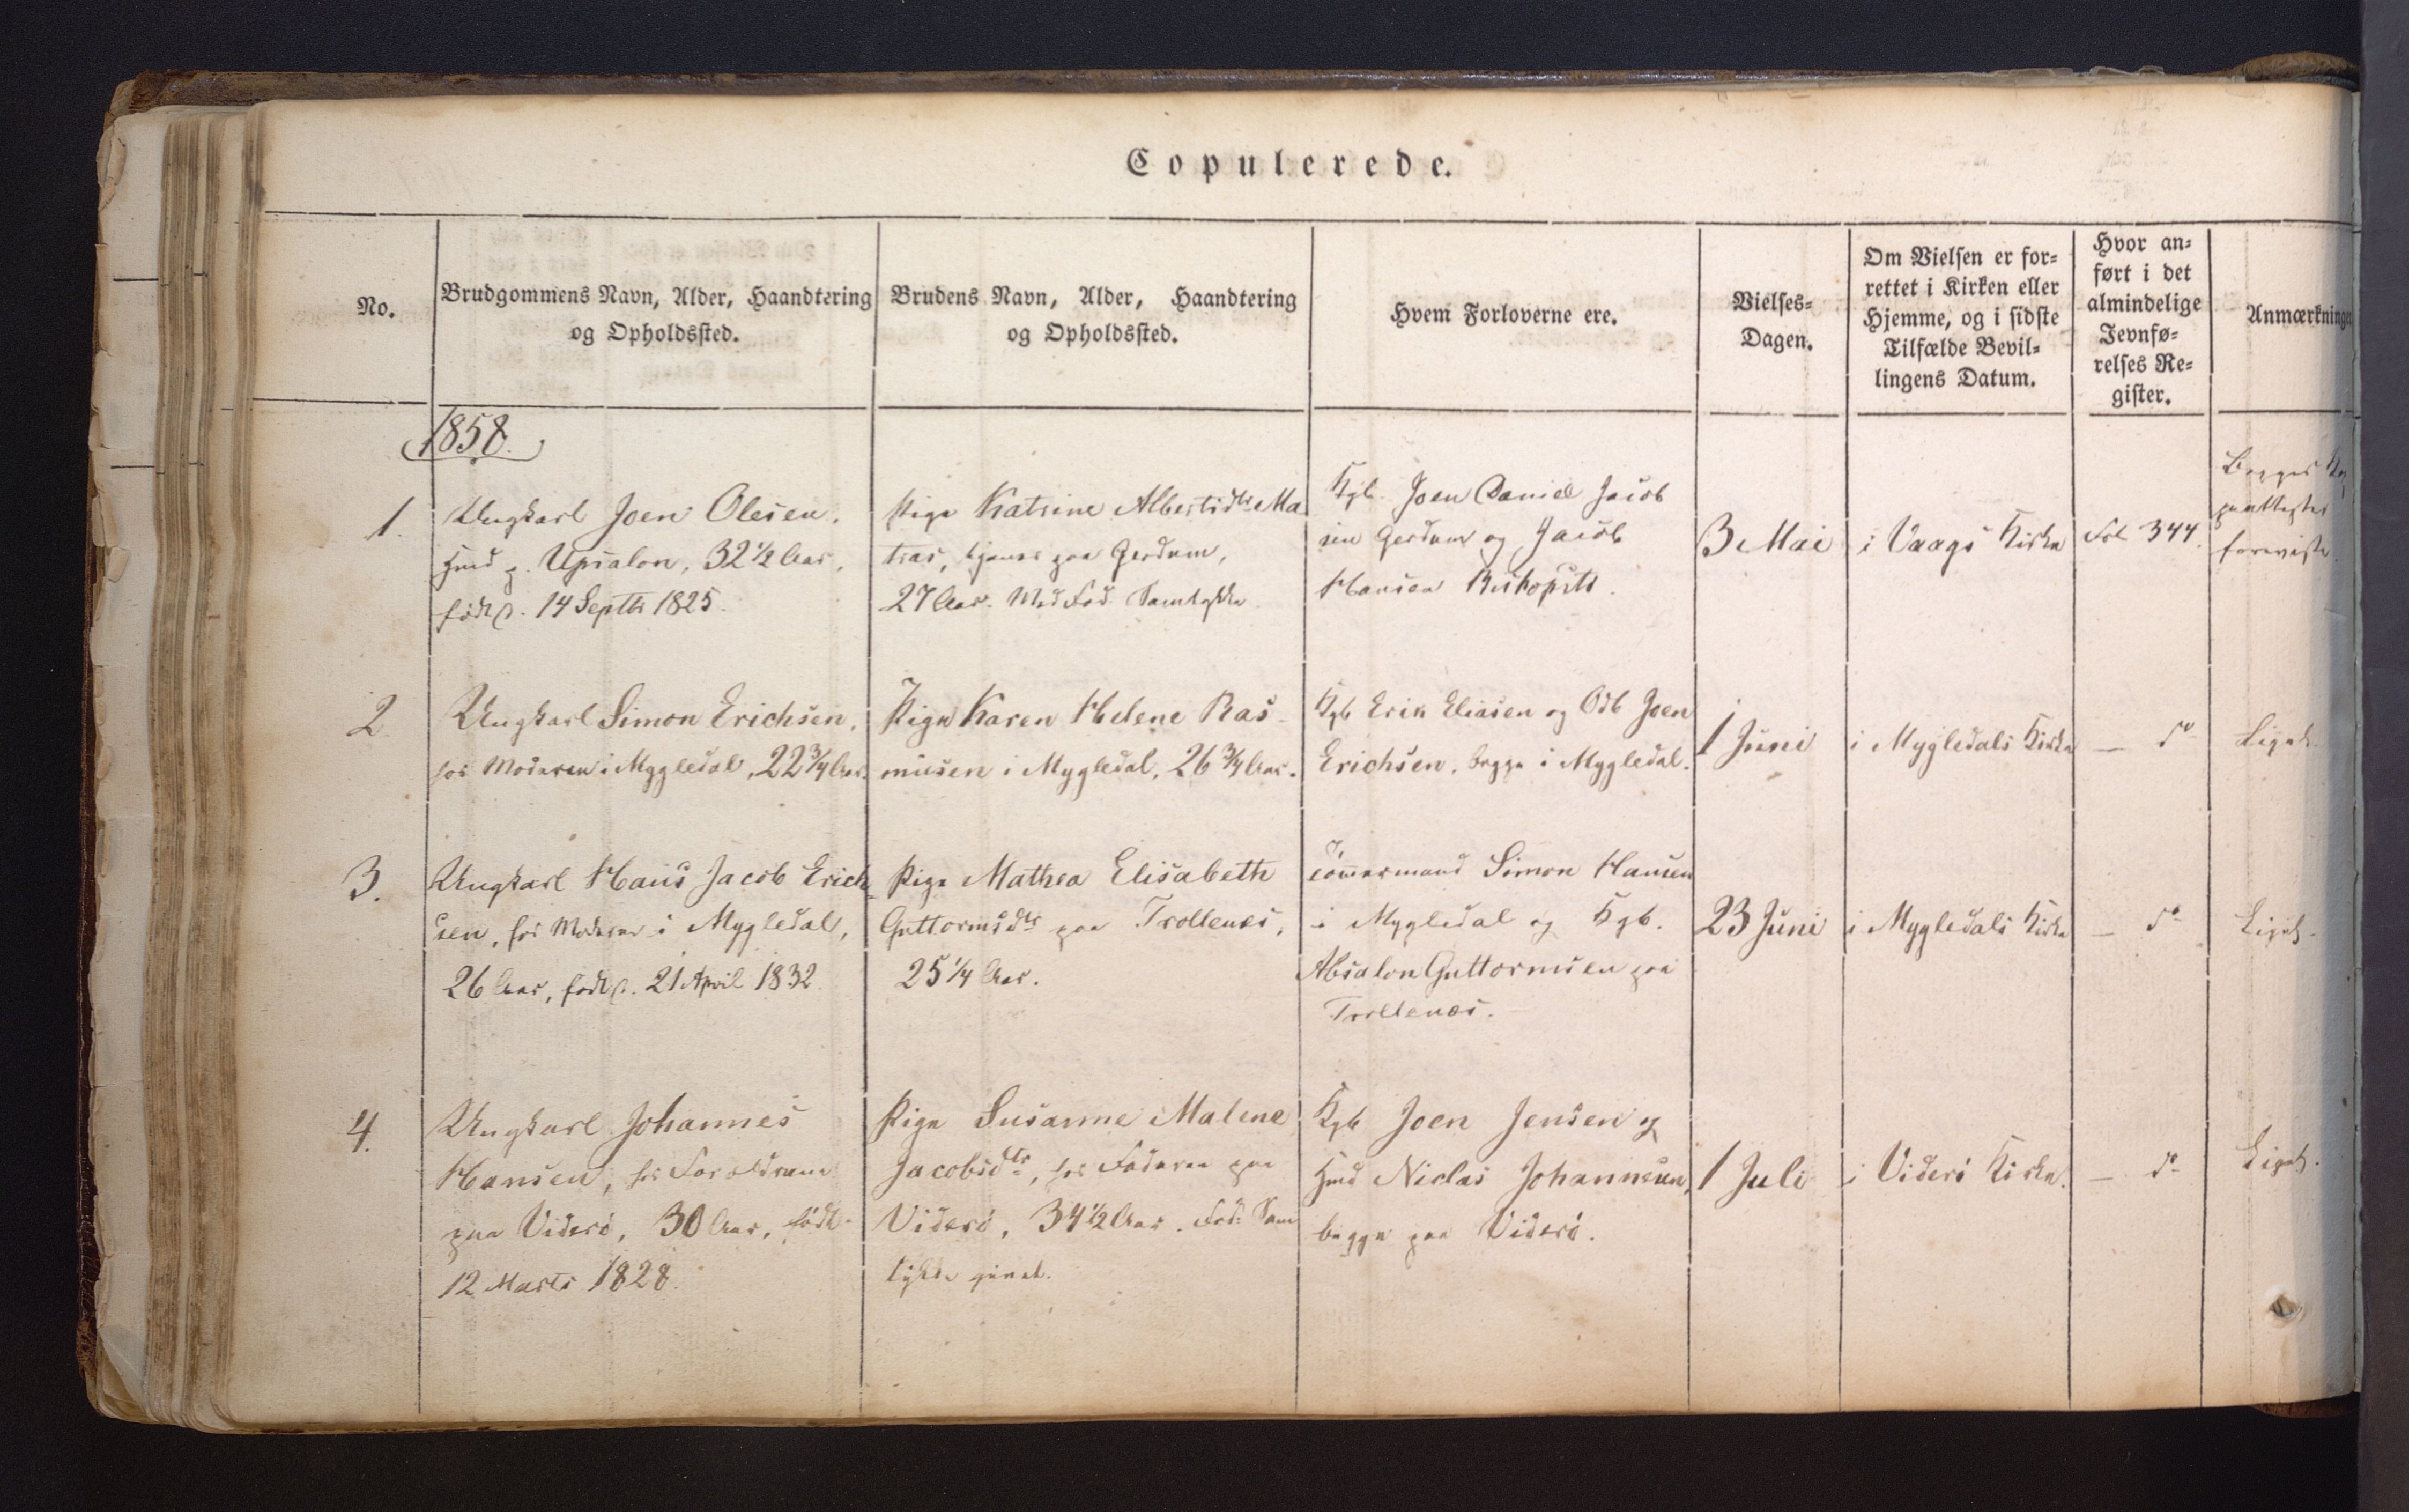 Copulerede.
No.
Brudgommens Navn, Alder, Haandtering
og Opholdssted.
Brudens Navn, Alder, Haandtering
og Opholdssted.
Hvem Forloverne ere.
Vielses-
Dagen.
Om Vielsen er for-
rettet i Kirken eller
Hjemme, og i sidste
Tilfælde Bevil-
lingens Datum.
Hvor an-
ført i det
almindelige
Jevnfø-
relses Re-
gister.
Anmærkninger
1858.
1.
Ungkarl Joen Olesen,
Hmd p. Upsalon, 32 1/2 Aar,
født d. 14 Septbr 1825.
Pige Katrine Albertsdtr Ma
tras, tjener paa Gerdum,
27 Aar. Med Fad. Samtykke.
Kgb. Joen Daniel Jacob
sen Gerdum og Jacob
Hansen Biskopstö.
3 Mai
i Vaags Kirke
Fol 344.
Begges
forevist
2
Ungkarl Simon Erichsen,
hos Moderen i Mygledal, 22 3/4 Aar.
Pige Karen Helene Ras-
musen i Mygledal, 26 3/4 Aar.
Kgb Erik Eliasen og Odb Joen
Erichsen, begge i Mygledal.
1 Juni
i Mygledals Kirke
— do
Ligel.
3.
Ungkarl Hans Jacob Erich
sen, hos Moderen i Mygledal,
26 Aar, født d. 21 April 1832.
Pige Mathea Elisabeth
Guttormsdtr paa Trollenes,
25 1/4 Aar.
Tömmermand Simon Hansen
i Mygledal og Kgb.
Absalon Guttormsen paa
Trollenes.
23 Juni
i Mygledals Kirke
— do
Ligel.
4.
Ungkarl Johannes
Hansen, hos Forældrene
paa Viderö, 30 Aar, født
12 Marts 1828.
Pige Susanne Malene
Jacobsdtr, hos Faderen paa
Viderö, 34 1/2 Aar. Fad: Sam
tykke givet.
Kgb Joen Jensen og
Hmd Niclas Johannesen,
begge paa Viderö.
1 Juli
i Viderö Kirke.
— do
Ligel.